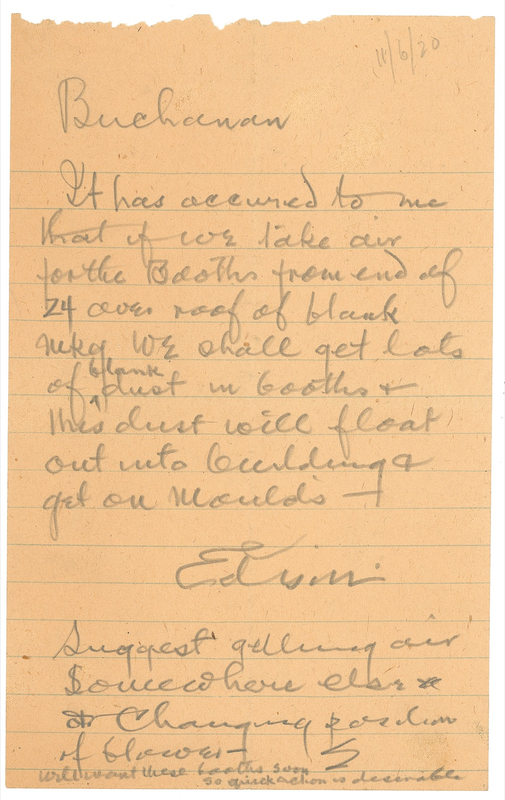 11/6/20
Buchanan
It has occured to me
that if we take air
for the Booths from end of
24 over roof of blank
mkg We shall get lots
of blank dust in booths &
this dust will float
out into building &
get on moulds —
Edison
Suggest getting air
Somewhere else
or Changing position
of blower— E
will want these booths soon
so quick action is desirable